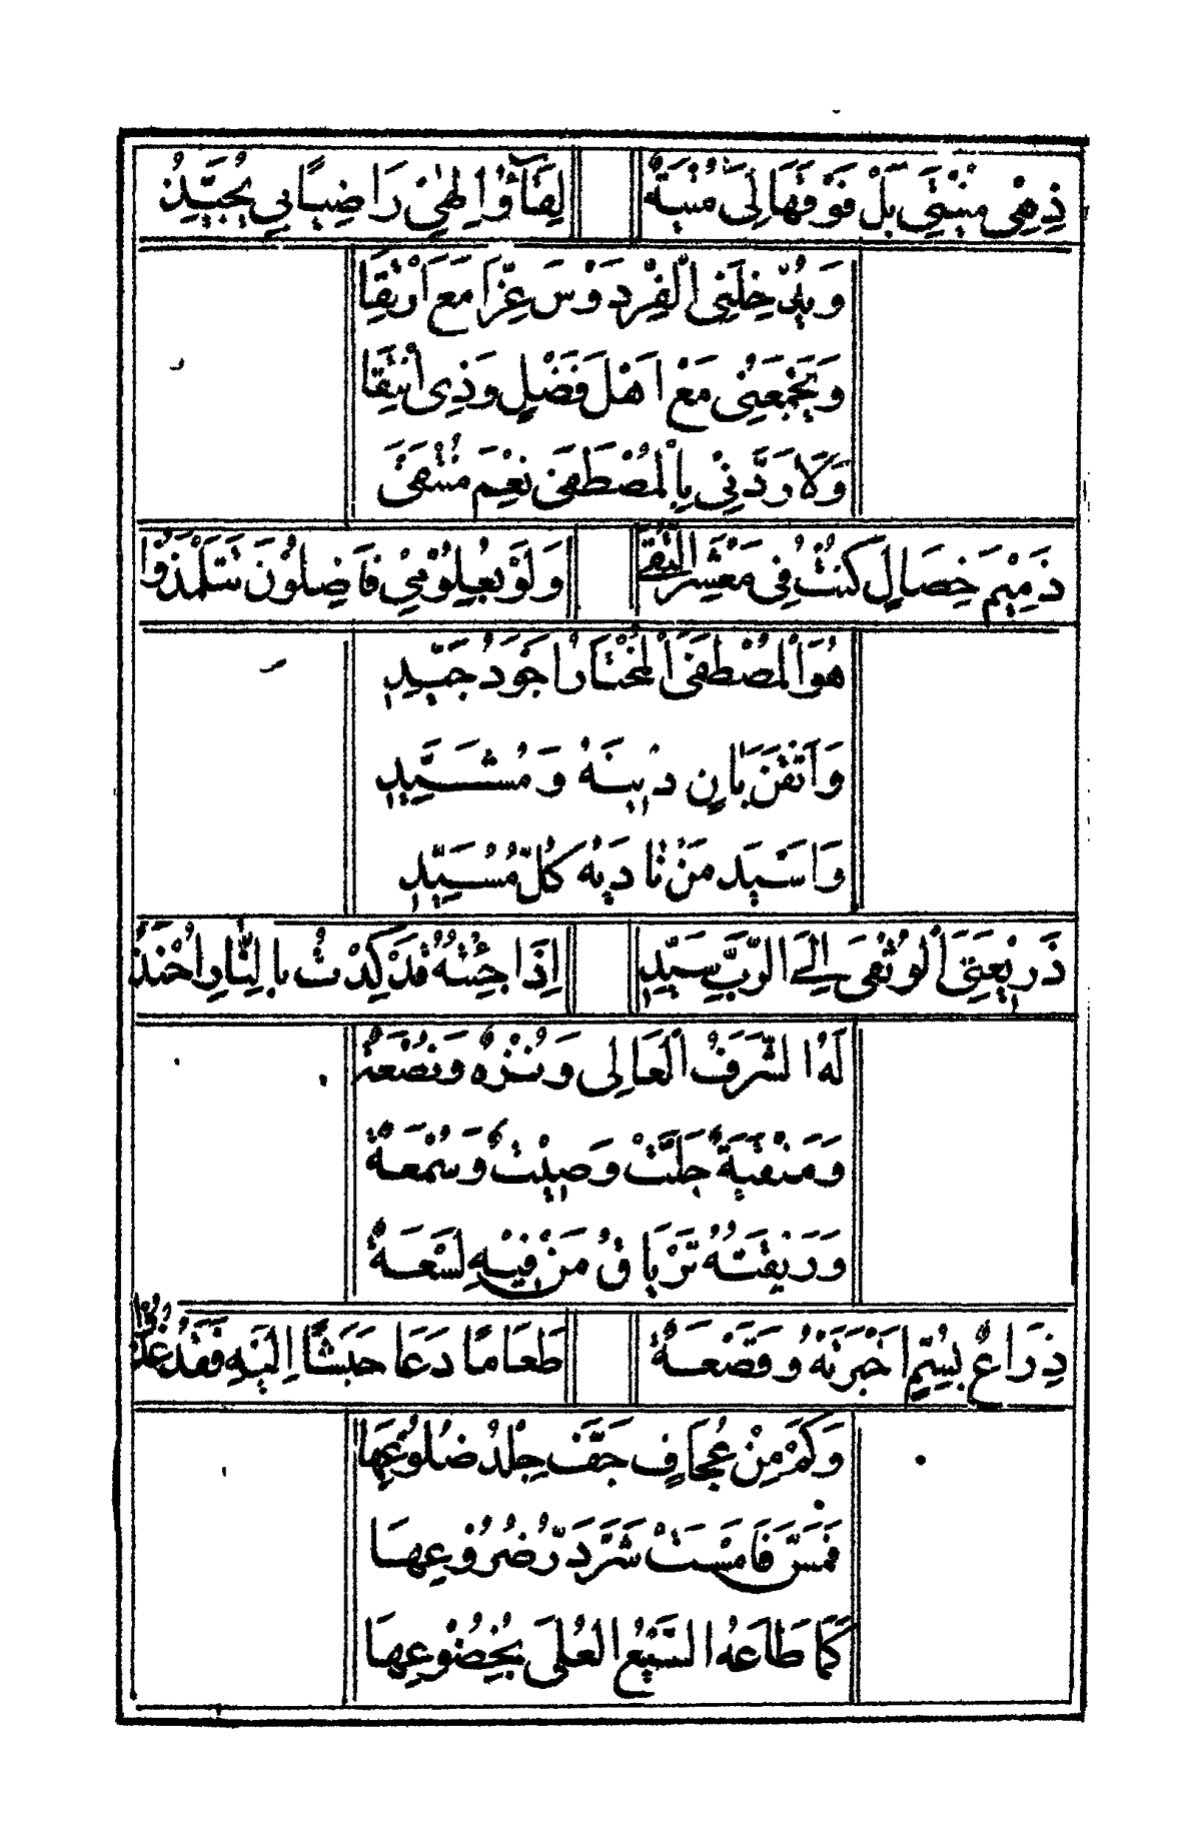 ذِهْىِ مُنْيَتِى بَلْ فَوْقَهَا لِىَ مُنْيَةٌ لِقَآؤُ اِلٰهِىْ رَاضِيًا بِى يُحَبَّذُ
وَيُدْخِلَنِى الْفِرْدَوْسَ عِزًّا مَعَ ارْتِقَا
وَيَجْمَعَنِى مَعْ اَهْلِ فَضْلٍ وَذِى انْتِقَا
وَلَاوَدَّنِىْ بِالْمُصْطَفَى نِعْمَ مُنْتَقَى
ذَمِيْمَ خِصَالٍ كُنْتُ فِى مَعْشَرِ التُّقَى وَلَوْ بِعُلُوْمِىْ فَاضِلُوْنَ تَتَلْمَذُوْا
هُوَ الْمُصْطَفَى الْمُخْتَارُ اَجْوَدُ جَيِّدٍ
وَاَتْقَنُ بَانٍ دِيْنَهُ وَمُشَيِّدٍ
وَاَسْيَدُ مَنْ نَادَيْهُ كُلُّ مُسَيَّدٍ
ذَرِيْعَتِىَ الْوُثْقَى اِلَى الرَّبِّ سَيِّدٍ اِذَا جِئْتُهُ قَدْ كِدْتُ بِالنَّارِ اُحْنَذُ
لَهُ الشَّرَفُ الْعَالِى وَنُزْهٌ وَنُصْعَةٌ
وَمَنْقَبَةٌ جَلَّتْ وَصِيْتٌ وَسُمْعَةٌ
وَرِيْقَتُهُ تَرْيَاقُ مَنْ فِيْهِ لَسْعَةٌ
ذِرَاعٌ بِسُمٍّ اَخْبَرَتْهُ وَقَصْعَةٌ طَعَامًا دَعَا حَبَشًا اِلَيْهِ فَقَدْ غُذُوْا
وَكَمْ مِنْ عِجَافٍ جَفَّ جِلْدُ ضُلُوْعِهَا
فَمَسَّ فَاَمْسَتْ ثَرَّ دَرُّ ضُرُوْعِهَا
كَمَا طَاعَهُ السَّبْعُ الْعُلَى بِخُضُوْعِهَا